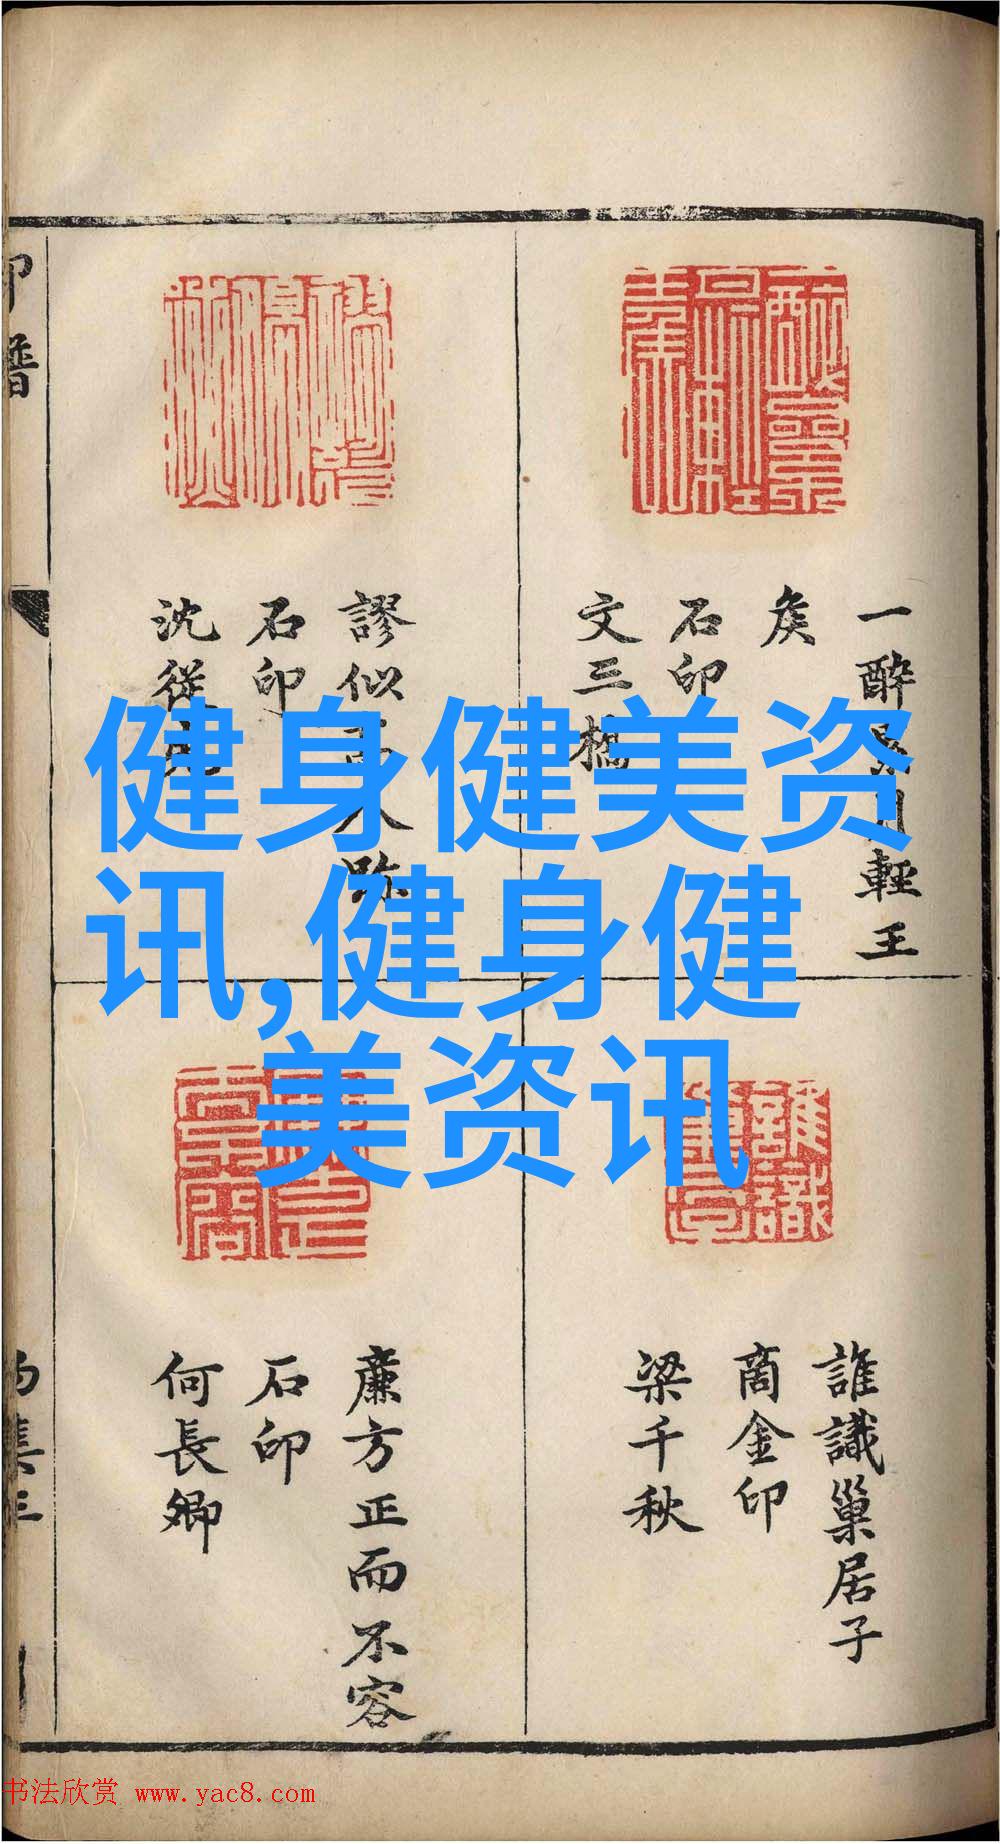 健身健美资
讯,健身健
美资讯
一醉累月輕王
矦
石印
文三橋
謬似人跡
石印
沈從
誰識巢居子
商金印
梁千秋
廉方正而不容
石印
何長卿
印譜
书法欣赏 www.yac8.com